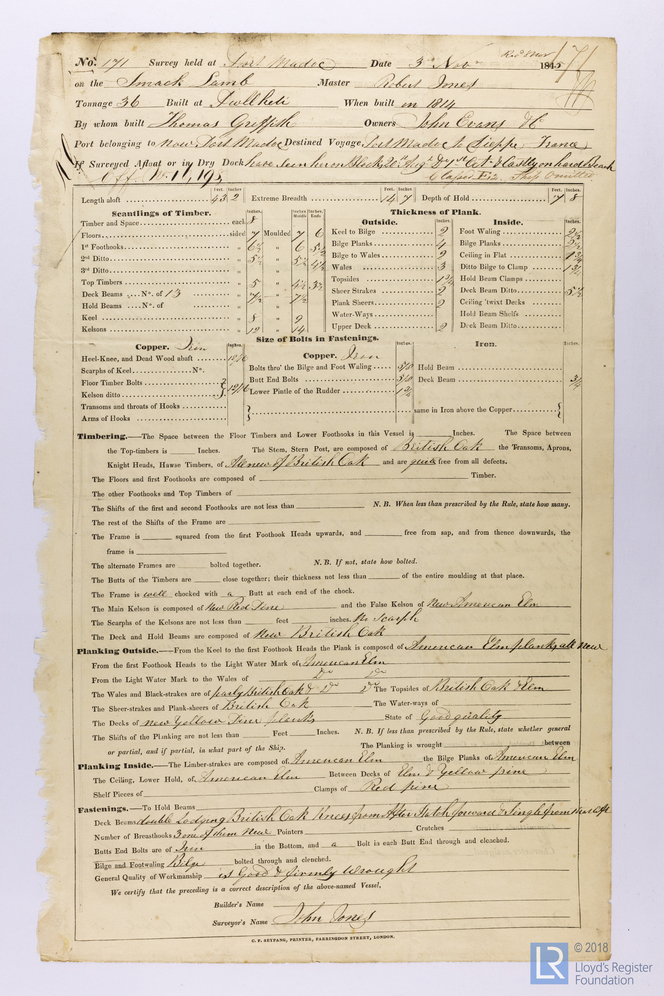 No. 171 Survey held at Port Madoc Date 3rd Novr 1845
on the Smack Lamb Master Robert Jones
Tonnage 36 Built at Pwllheli When built in 1814
By whom built Thomas Griffith Owners John Evans &c
Port belonging to now Port Madoc Destined Voyage Port Madoc to Dieppe France
If Surveyed Afloat or in Dry Dock have seen her on Blocks & lastly on hard Beach
Length aloft 43 2 Extreme Breadth 14 7 Depth of Hold 7 8
Scantlings of Timber.
Timber and Space each 8
Floors sided 7 Moulded 7 6
1st Foothooks 6½ " 6 5½
2nd Ditto 5½ " 5½ 4½
3rd Ditto " "
Top Timbers " 5 " 4½ 3½
Deck Beams No. of 13 " 7½ " 7½
Hold Beams No. of " "
Keel " 8 " 9
Kelsons " 12 " 14
Thickness of Plank.
Outside.
Keel to Bilge 2
Bilge Planks 4
Bilge to Wales 2
Wales 3
Topsides
Sheer Strakes 2
Plank Sheers 2
Water-Ways
Upper Deck 2
Inside.
Foot Waling 2½
Bilge Planks
Ceiling in Flat
Ditto Bilge to Clamp
Hold Beam Clamps
Deck Beam Ditto
Ceiling 'twixt Decks
Hold Beam Shelfs
Deck Beam Ditto
Size of Bolts in Fastenings.
Copper. Iron
Heel-Knee, and Dead Wood abaft
Scarphs of Keel No.
Floor Timber Bolts
Kelson ditto
Transoms and throats of Hooks
Arms of Hooks
Copper. Iron
Bolts thro' the Bilge and Foot Waling
Butt End Bolts
Lower Pintle of the Rudder
Iron.
Hold Beam
Deck Beam
same in Iron above the Copper
Timbering.—The Space between the Floor Timbers and Lower Foothooks in this Vessel is Inches. The Space between
the Top-timbers is Inches. The Stem, Stern Post, are composed of British Oak the Transoms, Aprons,
Knight Heads, Hawse Timbers, of All new of British Oak and are quite free from all defects.
The Floors and first Foothooks are composed of Timber.
The other Foothooks and Top Timbers of
The Shifts of the first and second Foothooks are not less than N. B. When less than prescribed by the Rule, state how many.
The rest of the Shifts of the Frame are
The Frame is squared from the first Foothook Heads upwards, and free from sap, and from thence downwards, the
frame is
The alternate Frames are bolted together. N. B. If not, state how bolted.
The Butts of the Timbers are close together; their thickness not less than of the entire moulding at that place.
The Frame is well chocked with a Butt at each end of the chock.
The Main Kelson is composed of New Red Pine and the False Kelson of New American Elm
The Scarphs of the Kelsons are not less than feet inches. No Scarph
The Deck and Hold Beams are composed of New British Oak
Planking Outside.—From the Keel to the first Foothook Heads the Plank is composed of American Elm planks all New
From the first Foothook Heads to the Light Water Mark of American Elm
From the Light Water Mark to the Wales of Do Do
The Wales and Black-strakes are of partly British Oak & Do Do The Topsides of British Oak & Elm
The Sheer-strakes and Plank-sheers of British Oak The Water-ways of
The Decks of new Yellow Pine planks State of Good quality
The Shifts of the Planking are not less than Feet Inches. N. B. If less than prescribed by the Rule, state whether general
or partial, and if partial, in what part of the Ship. The Planking is wrought between
Planking Inside.—The Limber-strakes are composed of American Elm the Bilge Planks of American Elm
The Ceiling, Lower Hold, of American Elm Between Decks of Elm & Yellow pine
Shelf Pieces of Clamps of Red pine
Fastenings.—To Hold Beams
Deck Beams double Lodging British Oak Knees from After Hatch forward & Single from
Number of Breasthooks 3 one of them New Pointers Crutches
Butts End Bolts are of Iron in the Bottom, and a Bolt is each Butt End through and clenched.
Bilge and Footwaling Bilge bolted through and clenched.
General Quality of Workmanship is Good & firmly wrought
We certify that the preceding is a correct description of the above-named Vessel,
Builder's Name
Surveyor's Name John Jones
G. F. SEYFANG, PRINTER, FARRINGDON STREET, LONDON.
LR © 2018
Lloyd's Register
Foundation